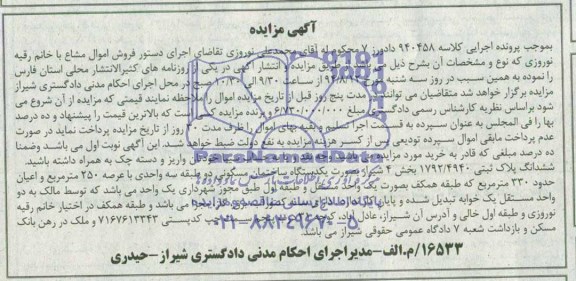 آگهی مزایده
بموجب پرونده اجرایی کلاسه ۹۴۰۴۵۸ دادورز ۷ محکوم له آقای محمدعلی نوروزی تقاضای اجرای دستور فروش اموال مشاع با خانم رقیه
نوروزی که نوع و مشخصات آن بشرح ذیل مزایده و انتشار آگهی در یکی از روزنامه های کثیرالانتشار محلی استان فارس
را نموده به همین سبب در روز سه شنبه از ساعت ۹/۳۰ الی ۱۰/۳۰ صبح در محل اجرای احکام مدنی دادگستری شیراز
مزایده برگزار خواهد شد متقاضیان می توانند مدت پنج روز قبل از تاریخ مزایده اموال را ملاحظه نمایند قیمتی که مزایده از آن شروع می
شود براساس نظریه کارشناس رسمی دادگستری مبلغ برنده مزایده کسی است که بالاترین قیمت را پیشنهاد و ده درصد
بها را فی المجلس به عنوان سپرده به قسمت اجرا تسلیم و بقیه بهای اموال را ظرف مدت روز از تاریخ مزایده پرداخت نماید در صورت
عدم پرداخت مابقی اموال سپرده تودیعی پس از کسر هزینه مزایده به نفع دولت ضبط خواهد شد. این آگهی نوبت اول می باشد وضمنا
ده درصد مبلغی که قادر به خرید مورد مزایده واریز و دسته چک به همراه داشته باشید.
ششدانگ پلاک ثبتی ۱۷۹۲/۴۹۴۰ بخش ۴ شیراز بصورت یکدستگاه ساختمان مسکونی دو طبقه سه واحدی با عرصه ۲۵۰ مترمربع و اعیان
حدود ۳۳۰ مترمربع که طبقه همکف بصورت یک واحد مستقل و طبقه اول طبق مجوز شهرداری یک واحد می باشد که توسط مالک به دو
واحد مستقل یک خوابه تبدیل شده و پایان کار می باشد و طبقه همکف در اختیار خانم رقیه
نوروزی و طبقه اول خالی و آدرس آن شیراز، عادل آباد، کدپستی ۷۱۶۷۶۱۳۳۴۳ و ملک در رهن بانک
مسکن و بازداشت شعبه ۷ دادگاه عمومی حقوقی شیراز می باشد.
۱۶۵۳۳/م.الف-مدیراجرای احکام مدنی دادگستری شیراز-حیدری
ParsNamadData
۰۲۱-۸۸۳۴۹۶۷۰-۵